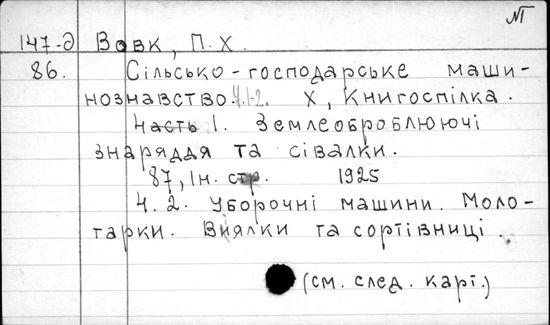 №
147-д Вовк, П. Х.
86. Сільсько-господарське маши-
нознавство. Ч.1-2. Х, Книгоспілка.
Часть 1. Землеоброблюючі
знаряддя та сівалки.
87, Ін. стр. 1925
Ч. 2. Уборочні машини. Моло-
тарки. Віялки та сортівниці.
(см. след. карт.)